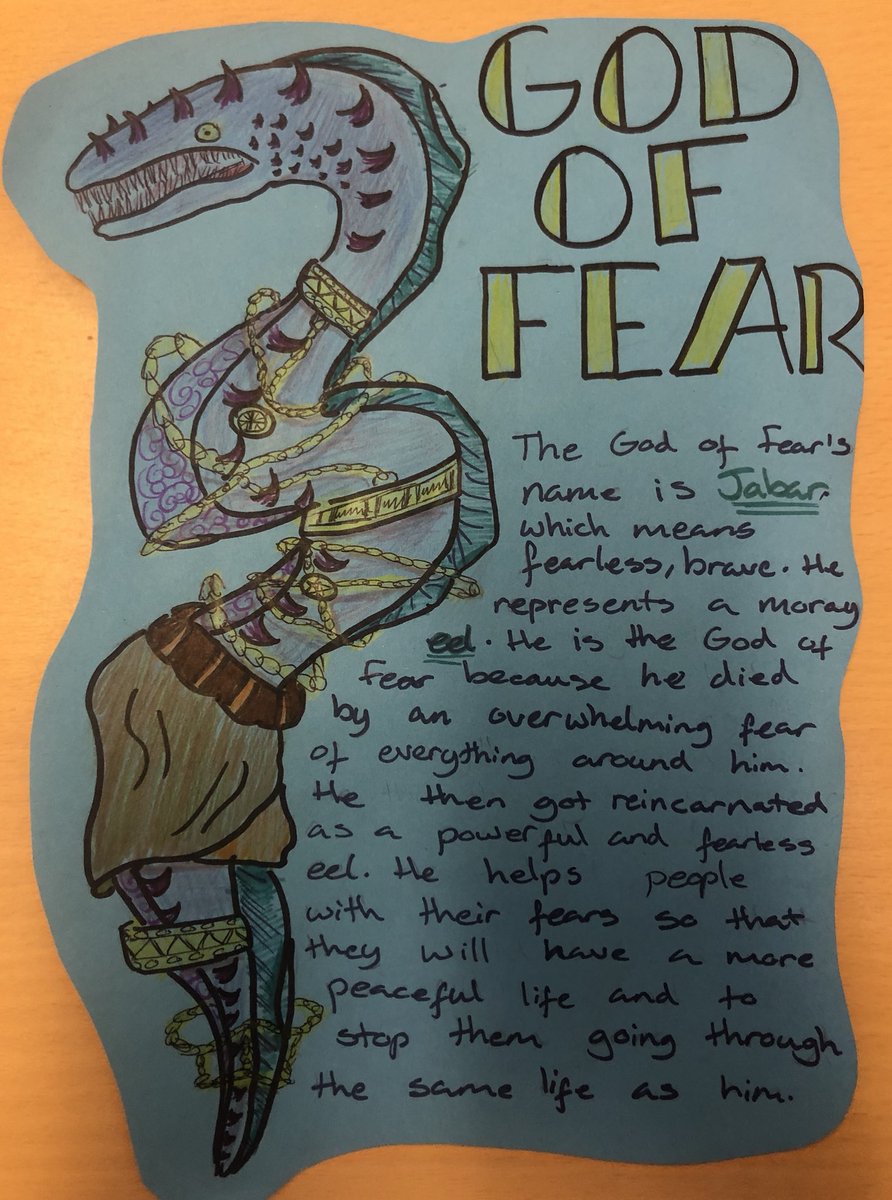 GOD
OF
FEAR
The God of Fear's
name is Jabar.
which means
fearless, brave. He
represents a moray
eel. He is the God of
Fear because he died
by an overwhelming fear
of everything around him.
He then got reincarnated
as a powerful and fearless
eel. He helps people
with their fears so that
they will have a more
peaceful life and to
stop them going through
the same life as him.